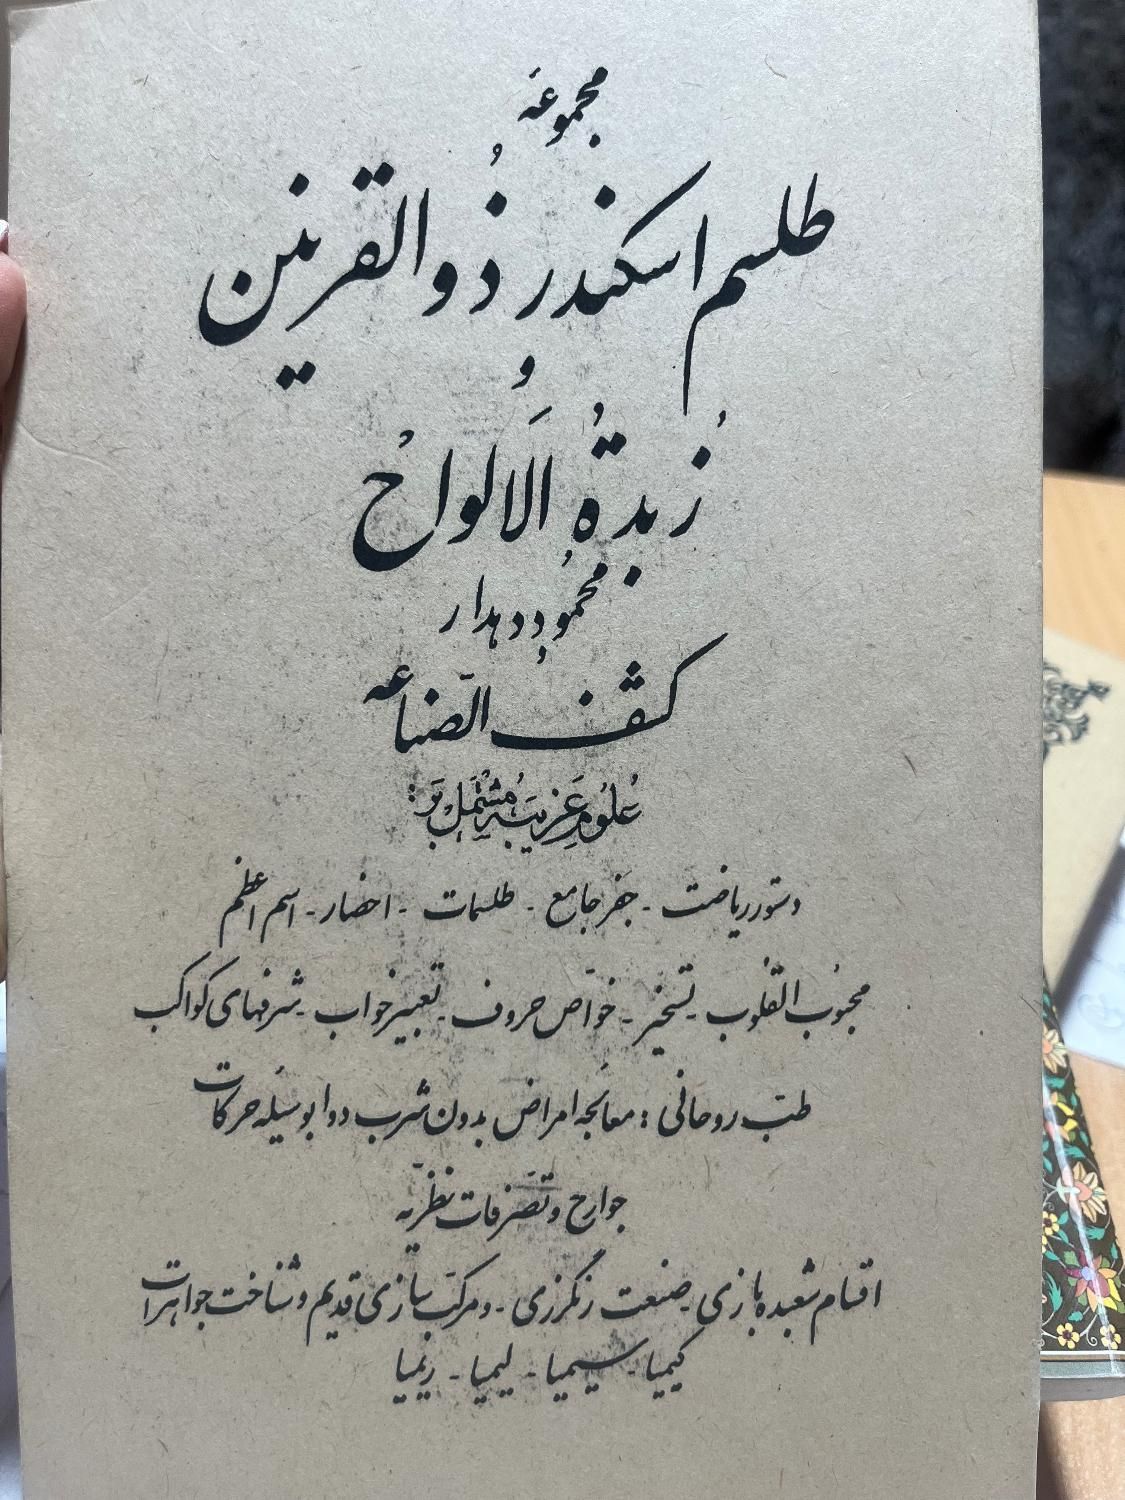 مجموعهَ
طلسم اسکندر ذُوالقرنین
و
زُبدةُ الَالواح
محمُود دهدار
کشف الصّناعه
عُلُوم غَریبَه مُشتَمِلْ بَر:
دستور ریاضت - جَفر جامع - طلسمات - احضار - اسم اعظم
محبُوب القُلوب - تسخیر - خوّاص حروف - تعبیر خواب - شرفهای کواکب
طبّ روحانی : معالجه امراض بدون شرب دوا بوسیله حرکات
جوارح و تصّرفات نظریّه
اقسام شعبده بازی - صنعت رنگرزی - و مرکبّ سازی قدیم و شناخت جواهرات
کیمیا - سیمیا - لیمیا - ریمیا